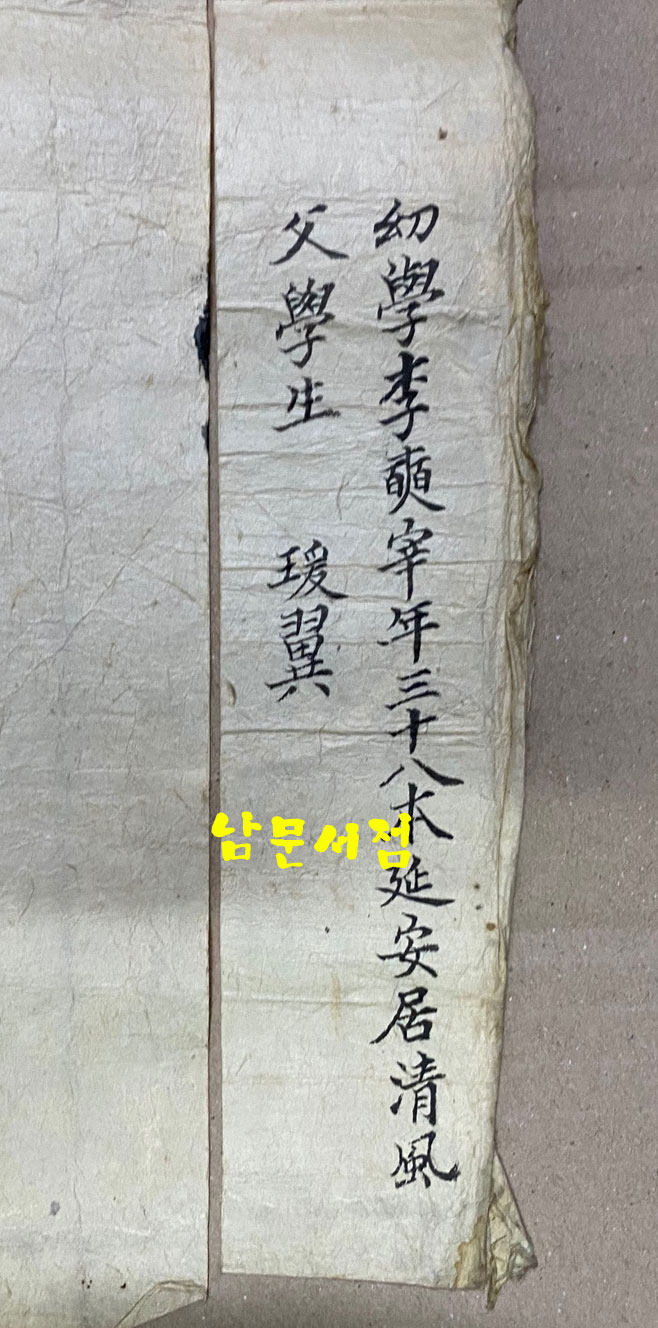 幼學李奭宰年三十八本延安居清風
父學生 瑗翼
남문서점